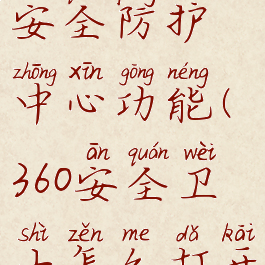 安全防护
zhōng xīn gōng néng
中心功能(
ān quán wèi
360安全卫
shì zěn me dǎ kāi
士怎么打开